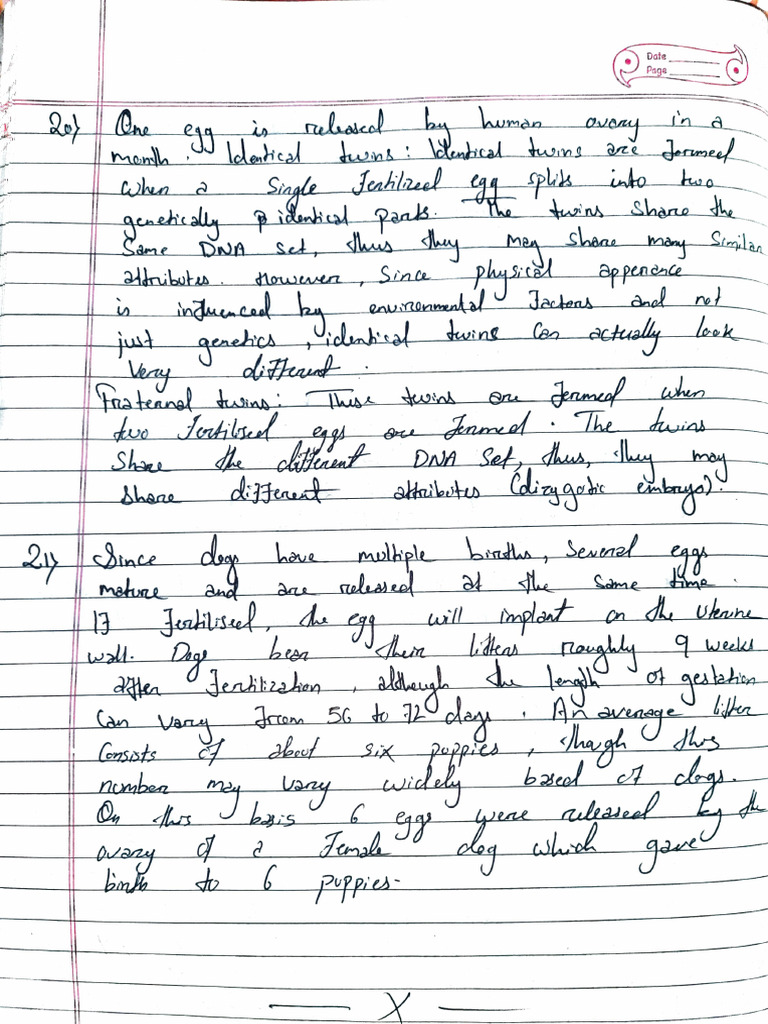 Date
Page
20) One egg is released by human ovary in a
month. Identical twins: Identical twins are formed
when a single fertilized egg splits into two
genetically identical parts. The twins share the
same DNA set, thus they may share many similar
attributes. However, since physical apperance
is influenced by environmental factors and not
just genetics, identical twins can actually look
very different.
Fraternal twins: These twins are formed when
two fertilised eggs are formed. The twins
share the different DNA set, thus, they may
share different attributes (dizygotic embryo).
21) Since dogs have multiple births, several eggs
mature and are released at the same time.
If fertilised, the egg will implant on the uterine
wall. Dogs bear their litters roughly 9 weeks
after fertilization, although the length of gestation
can vary from 56 to 72 days. An average litter
consists of about six puppies, though this
number may vary widely based of dogs.
On this basis 6 eggs were released by the
ovary of a female dog which gave
birth to 6 puppies-
X